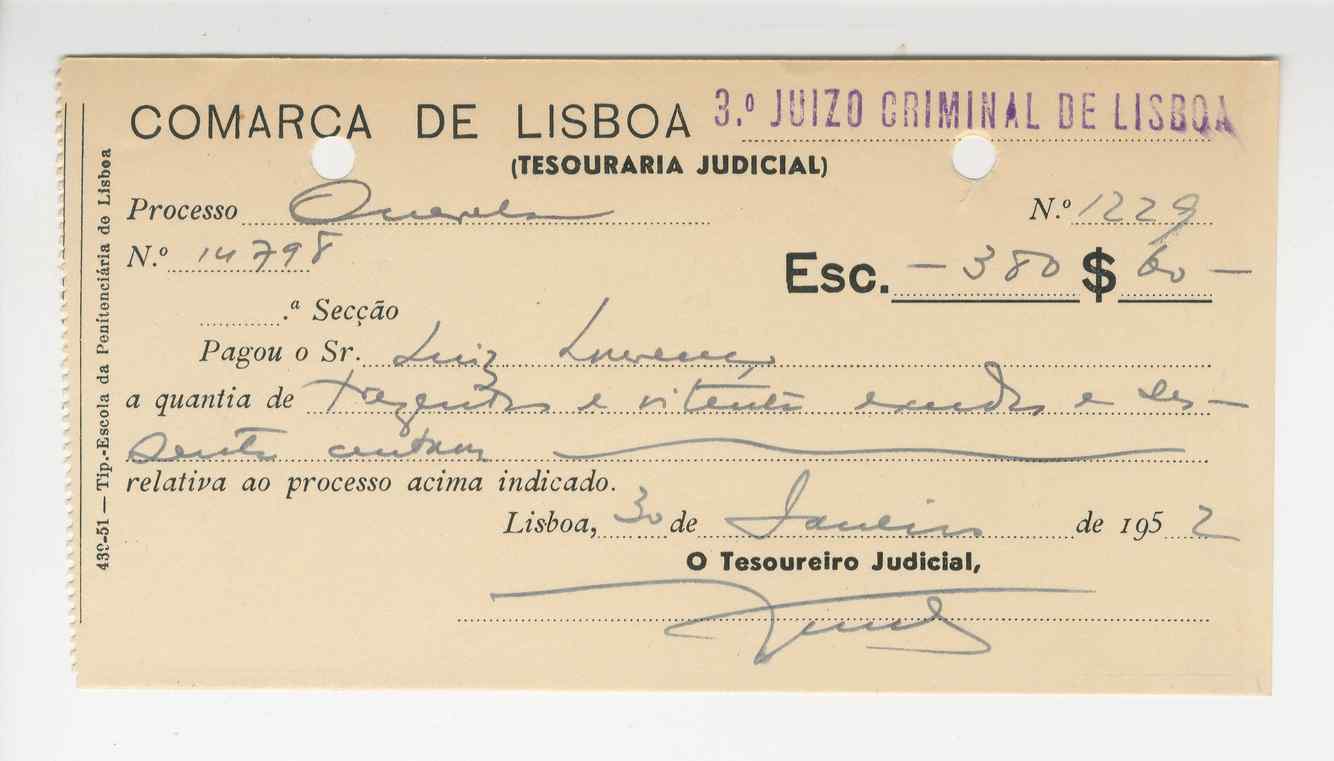 COMARCA DE LISBOA 3.º JUIZO CRIMINAL DE LISBOA
(TESOURARIA JUDICIAL)
Processo Querela N.º 1229
N.º 14798
Esc. — 380 $ 60 —
.ª Secção
Pagou o Sr. Luiz Lourenço
a quantia de trezentos e oitenta escudos e ses-
senta centavos
relativa ao processo acima indicado.
Lisboa, 30 de Janeiro de 1952
O Tesoureiro Judicial,
439-51 — Tip.-Escola da Penitenciária de Lisboa